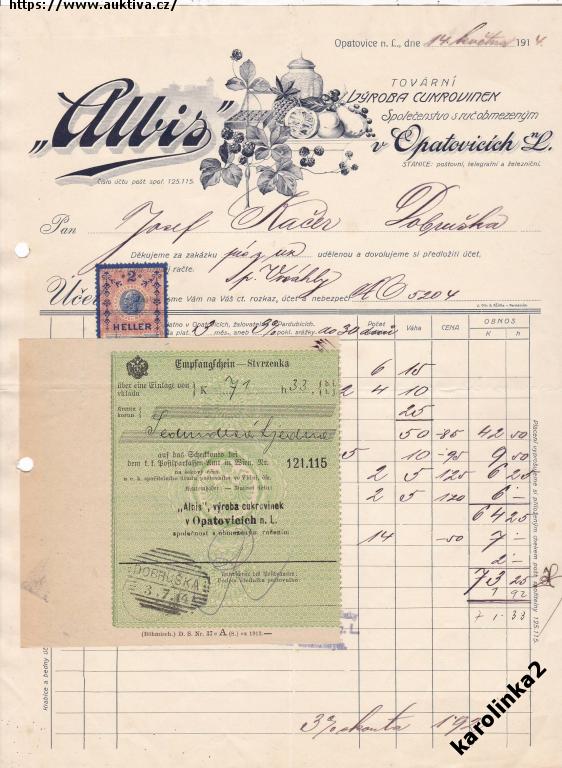 https://www.auktiva.cz/
Opatovice n. L., dne 14 května 1914.
„Albis"
TOVÁRNÍ
VÝROBA CUKROVINEK
Společenstvo s ruč. obmezeným
v Opatovicích n/L.
STANICE: poštovní, telegrafní a železniční.
číslo účtu pošt. spoř. 125.115.
Pan Josef Kačer Dobruška
Děkujeme za zakázku udělenou a dovolujeme si předložiti účet,
račte.
Účet
jsme Vám na Váš ct. rozkaz, účet i nebezpečí 5204
2
HELLER
v Opatovicích, žalovatelno v Pardubicích.
měs., aneb 3% pokl. srážky do 30 dnů
Počet Váha CENA OBNOS
K h
6 15
2 4 10
25
50 -85 42 50
5 10 -95 9 50
2 5 125 6 25
2 5 120 6 -
64 25
14 -50 7 -
2 -
73 25
1 92
71.33
Empfangschein — Stvrzenka
über eine Einlage von
vkladu
K 71 h 33
Krone
korun
auf das Scheckkonto bei
dem k. k. Postsparkassen-Amt in Wien, Nr. 121.115
„Albis", výroba cukrovinek
v Opatovicích n. L.
společnost s obmezeným ručením.
DOBRUŠKA
3.7.14
(Böhmisch.) D. S. Nr. 37 e A (S.) ex 1913.—
Placení vyprošujeme si přiloženým chekem pošt. spořitelny 125.115.
Krabice a bedny
3% skonta 192
karolinka2